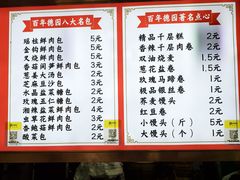 百年德园八大名包
瑶柱鲜肉包 5元
金钩鲜肉包 5元
叉烧鲜肉包 5元
香菇鲜肉包 3元
葱姜大汤包 2元
芝麻豆沙包 3元
水晶盐菜包 2元
玫瑰五仁糖包 2元
湘辣盐菜包 4元
虫草花鲜肉包 2元
香鲍菇鲜肉包 2元
酸菜包 2元
百年德园著名点心
精品千层糕 2元
香辣千层肉卷 2元
双油烧麦 1.5元
葱花盐卷 1.5元
玫瑰马蹄卷 2元
极品银丝卷 2元
荞麦馒头 2元
红豆卷 2元
小馒头（斤） 5元
大馒头（个） 1元